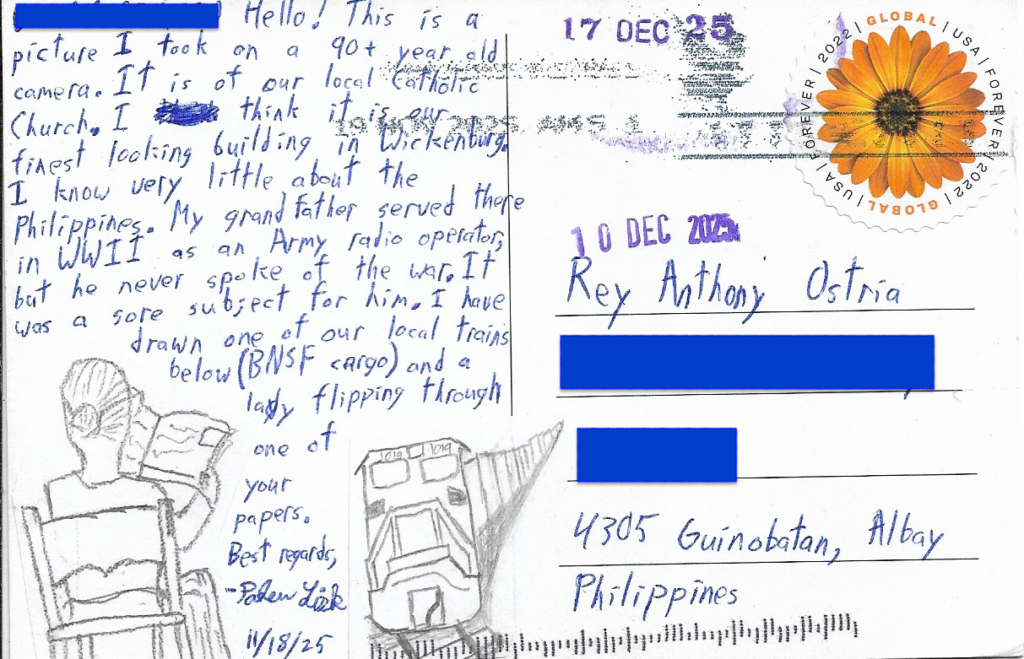 Hello! This is a
picture I took on a 90+ year old
camera. It is of our local Catholic
Church. I think it is our
finest looking building in Wickenburg.
I know very little about the
Philippines. My grandfather served there
in WWII as an Army radio operator,
but he never spoke of the war. It
was a sore subject for him. I have
drawn one of our local trains
below (BNSF cargo) and a
lady flipping through
one of
your
papers.
Best regards,
11/18/25
1019 1019
17 DEC 25
GLOBAL | USA | FOREVER | 2022 | GLOBAL | USA | FOREVER | 2022 |
10 DEC 2025
Rey Anthony Ostria
4305 Guinobatan, Albay
Philippines